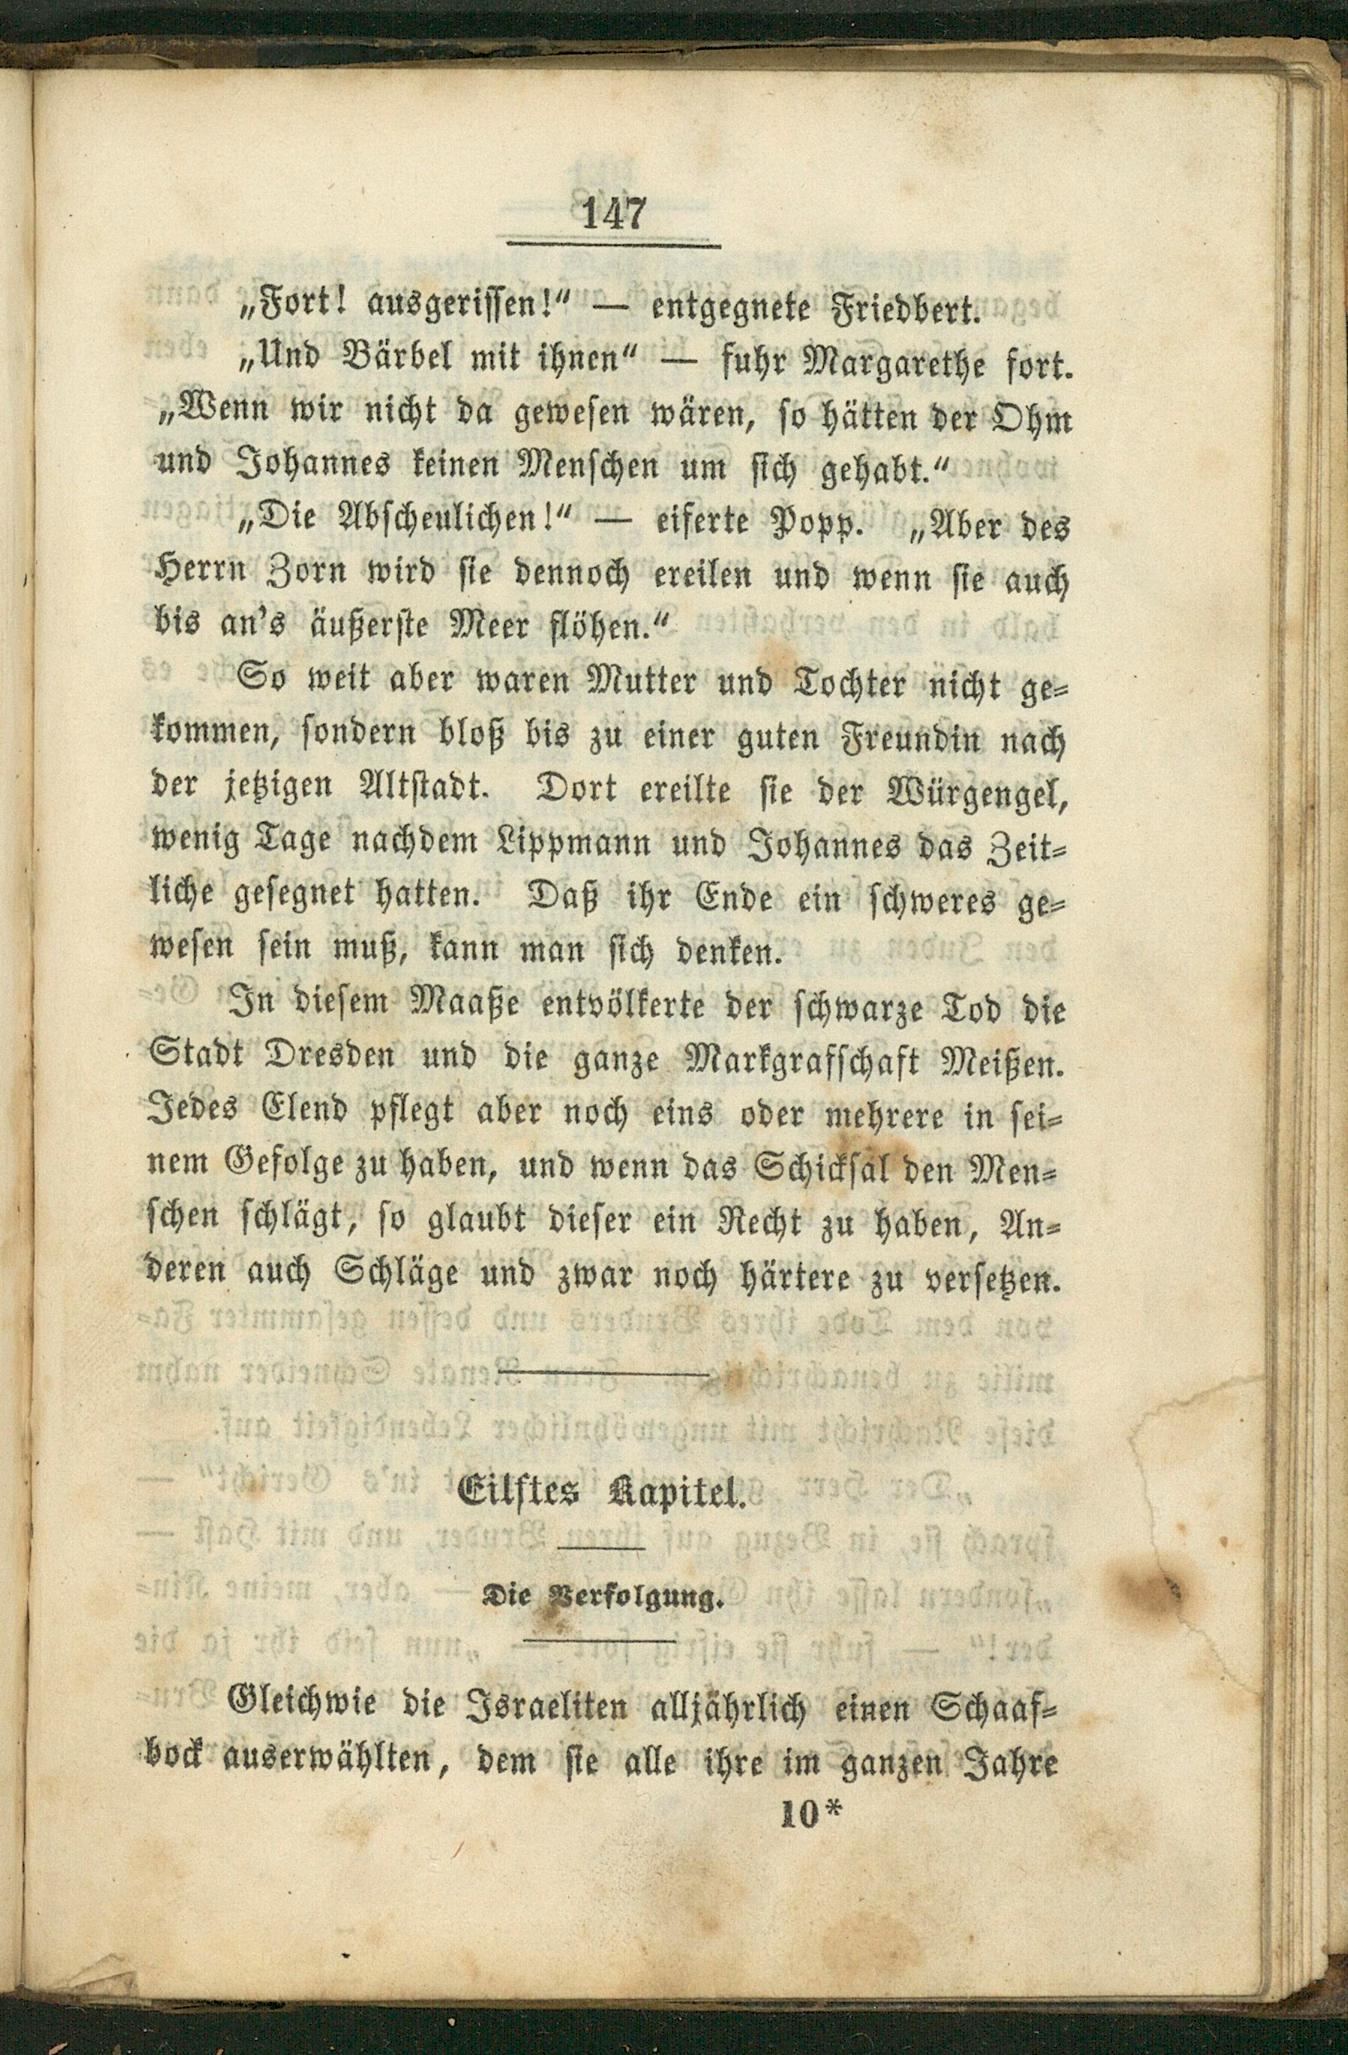 147
„Fort! ausgerissen!“ — entgegnete Friedbert.
„Und Bärbel mit ihnen“ — fuhr Margarethe fort.
„Wenn wir nicht da gewesen wären, so hätten der Ohm
und Johannes keinen Menschen um sich gehabt.“
„Die Abscheulichen!“ — eiferte Popp. „Aber des
Herrn Zorn wird sie dennoch ereilen und wenn sie auch
bis an’s äußerste Meer flöhen.“
So weit aber waren Mutter und Tochter nicht ge-
kommen, sondern bloß bis zu einer guten Freundin nach
der jetzigen Altstadt. Dort ereilte sie der Würgengel,
wenig Tage nachdem Lippmann und Johannes das Zeit-
liche gesegnet hatten. Daß ihr Ende ein schweres ge-
wesen sein muß, kann man sich denken.
In diesem Maaße entvölkerte der schwarze Tod die
Stadt Dresden und die ganze Markgrafschaft Meißen.
Jedes Elend pflegt aber noch eins oder mehrere in sei-
nem Gefolge zu haben, und wenn das Schicksal den Men-
schen schlägt, so glaubt dieser ein Recht zu haben, An-
deren auch Schläge und zwar noch härtere zu versetzen.
Eilftes Kapitel.
Die Verfolgung.
Gleichwie die Israeliten alljährlich einen Schaaf-
bock auserwählten, dem sie alle ihre im ganzen Jahre
10*